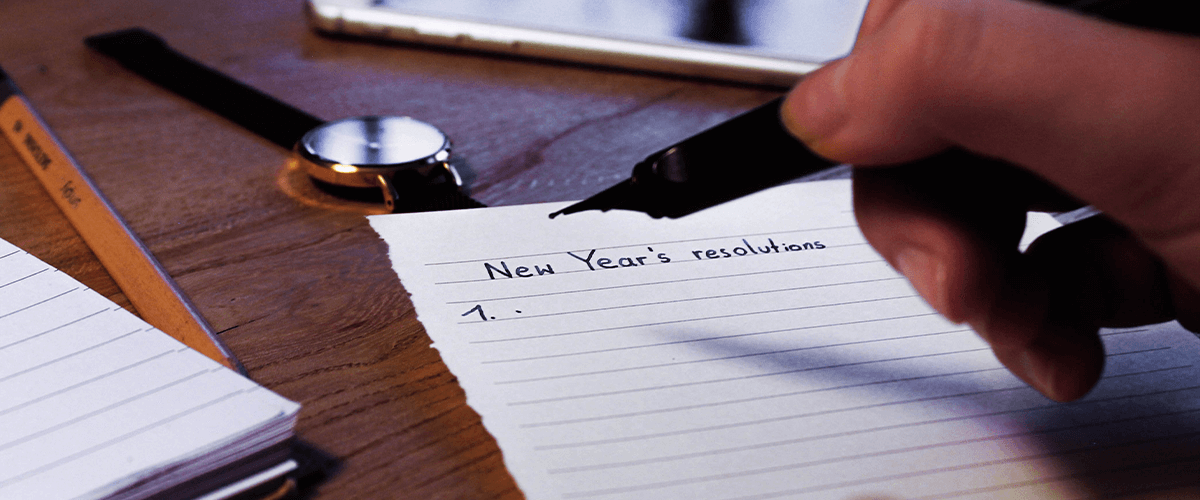 New Year's resolutions
1. .